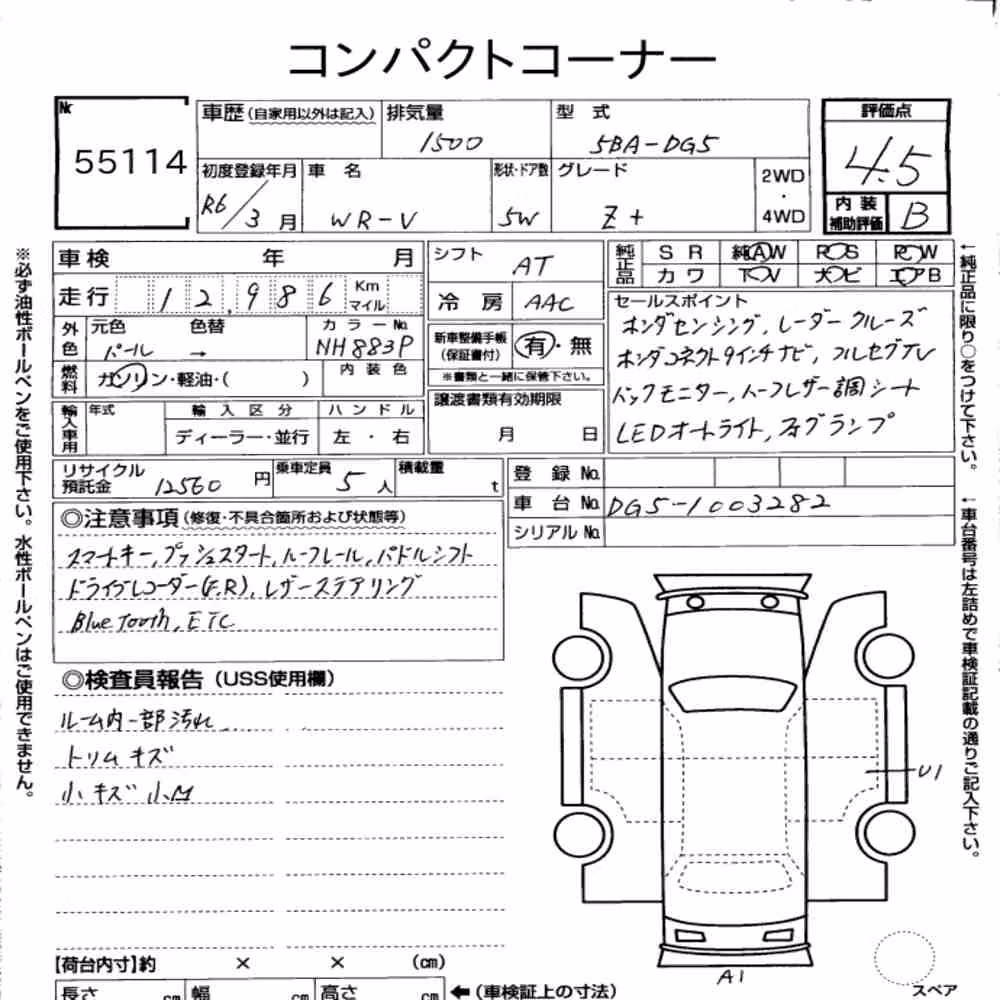 コンパクトコーナー
№ 55114
車歴(自家用以外は記入) 排気量 1500 型式 5BA-DG5
評価点 4.5
初度登録年月 R6/3月 車名 WR-V 形状・ドア数 5W グレード Z+ 2WD・4WD
内装補助評価 B
車検 年 月
走行 12,986 Km マイル
シフト AT
冷房 AAC
純正品 SR 純AW PS PW
カワ TV ナビ エアB
外色 元色 パール 色替 → カラーNo. NH883P
燃料 ガソリン・軽油・( ) 内装色
新車整備手帳(保証書付) 有・無
※書類と一緒に保管下さい。
セールスポイント
ホンダセンシング, レーダークルーズ
ホンダコネクト9インチナビ, フルセグTV
バックモニター, ハーフレザー調シート
LEDオートライト, フォグランプ
輸入車用 年式 輸入区分 ディーラー・並行 ハンドル 左・右
譲渡書類有効期限 月 日
リサイクル預託金 12560円 乗車定員 5人 積載量 t
登録No.
車台No. DG5-1003282
シリアルNo.
◎注意事項(修復・不具合箇所および状態等)
スマートキー, プッシュスタート, ルーフレール, パドルシフト
ドライブレコーダー(F,R), レザーステアリング
Bluetooth, ETC
◎検査員報告(USS使用欄)
ルーム内一部汚れ
トリムキズ
小キズ小凹
U1
A1
スペア
【荷台内寸】約 × × (cm)
長さ cm 幅 cm 高さ cm ←(車検証上の寸法)
※必ず油性ボールペンをご使用下さい。水性ボールペンはご使用できません。
←純正品に限り○をつけて下さい。
←車台番号は左詰めで車検証記載の通りご記入下さい。